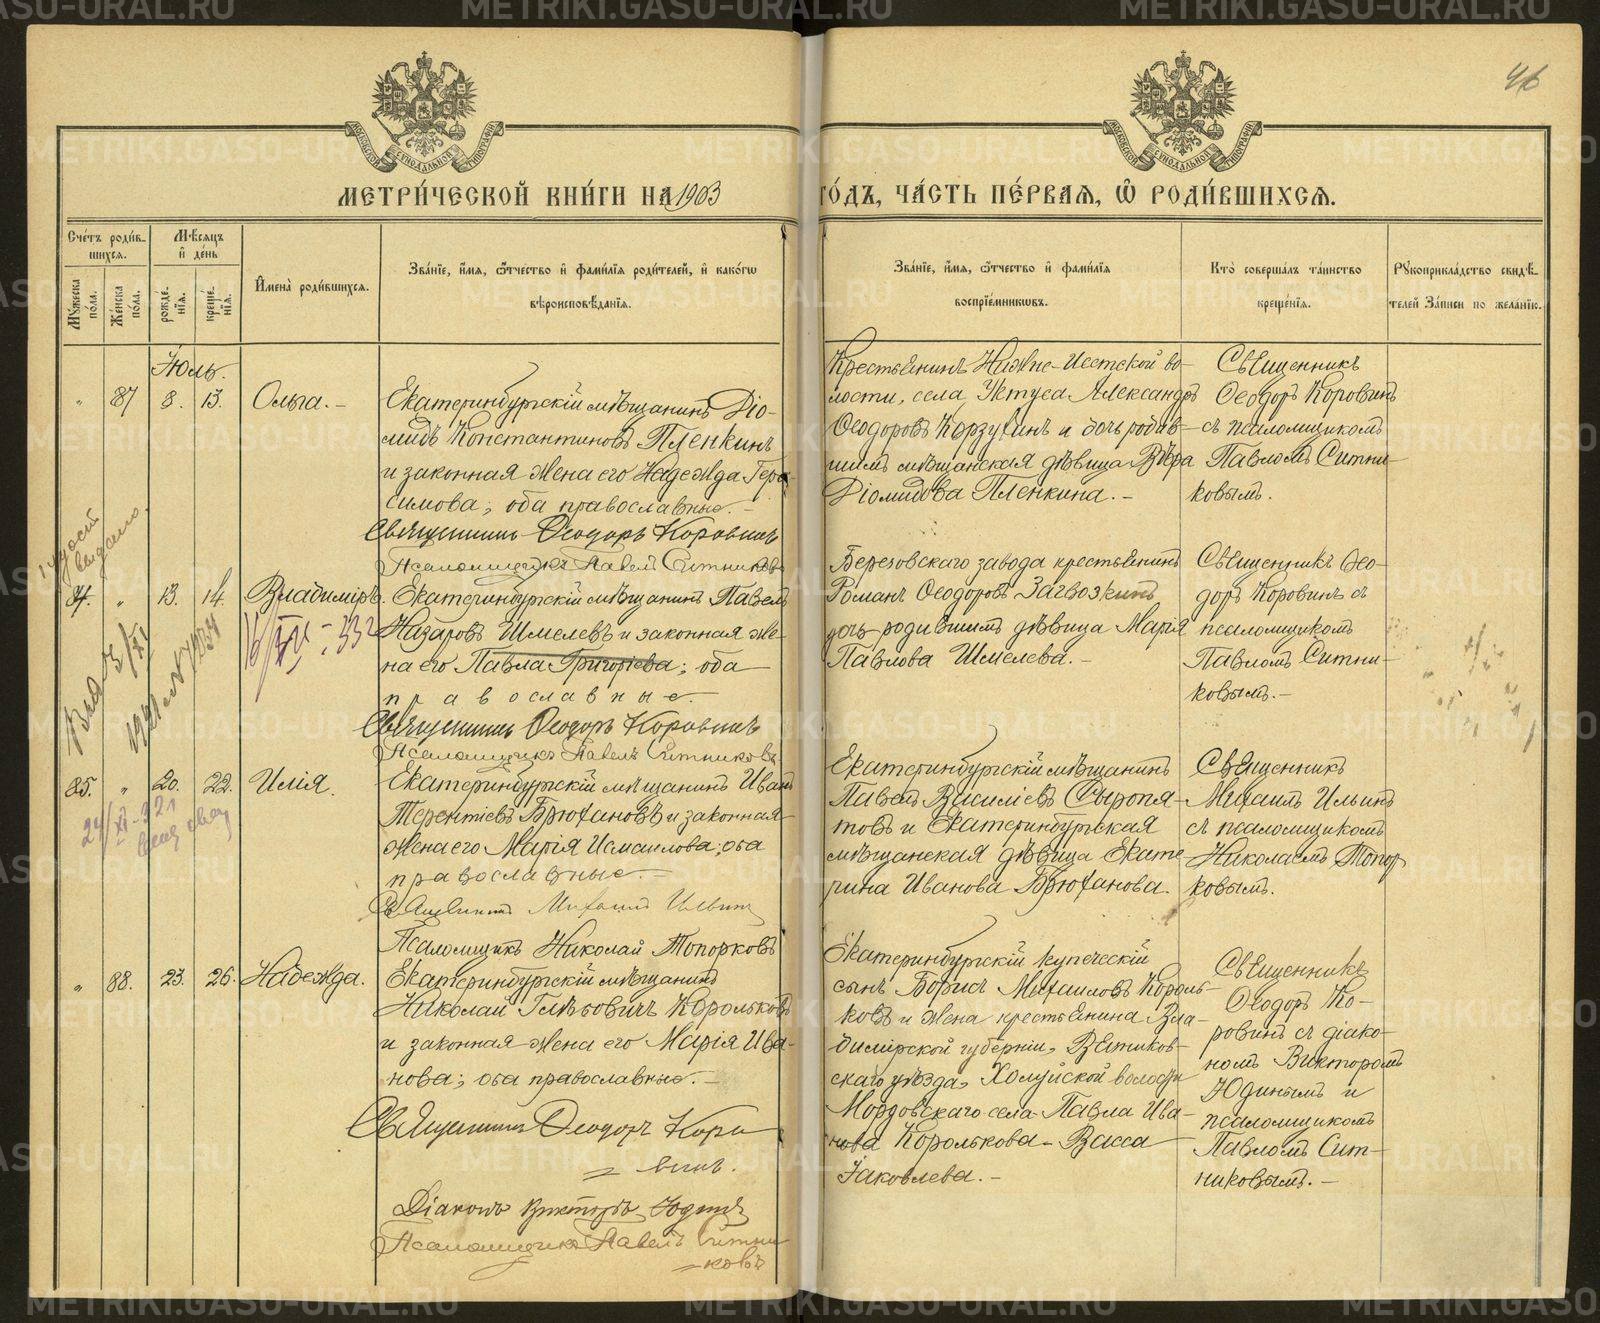 46
МОСКОВСКОЙ СѴНОДАЛЬНОЙ ТИПОГРАФІИ
МОСКОВСКОЙ СѴНОДАЛЬНОЙ ТИПОГРАФІИ
МЕТРИ́ЧЕСКОЙ КНИ́ГИ НА 1903 ГО́ДЪ, ЧА́СТЬ ПЕ́РВАЯ, Ѡ РОДИ́ВШИХСѦ.
Сче́тъ роди́в-
шихсѧ.
Мѣ́сѧцъ
и҆ де́нь
Мꙋ́жеска по́ла.
Же́нска по́ла.
рожде́нїѧ.
креще́нїѧ.
И҆мена̀ роди́вшихсѧ.
Зва́нїе, и҆́мѧ, ѻ҆́тчество и҆ фамі́лїѧ роди́телей, и҆ како́гѡ
вѣроисповѣ́данїѧ.
Зва́нїе, и҆́мѧ, ѻ҆́тчество и҆ фамі́лїѧ
воспрїе́мникѡвъ.
Кто̀ соверша́лъ та́инство
креще́нїѧ.
Рꙋкоприкла́дство свидѣ́-
телей За́писи по жела́нїю.
Іюль.
" 87 8. 13. Ольга.-
Екатеринбургскій мѣщанинъ Діо-
мидъ Константиновъ Пленкинъ
и законная жена его Надежда Гера-
симова; оба православные.-
Священникъ Ѳеодоръ Коровинъ
Псаломщикъ Павелъ Ситниковъ
Крестьянинъ Нижне-Исетской во-
лости, села Уктуса Александръ
Ѳеодоровъ Корзухинъ и дочь родив-
шихъ мѣщанская дѣвица Вѣра
Діомидова Пленкина.-
Священникъ
Ѳеодоръ Коровинъ
съ псаломщикомъ
Павломъ Ситни-
ковымъ.
84. " 13. 14. Владиміръ.
Екатеринбургскій мѣщанинъ Павелъ
Назаровъ Шмелевъ и законная же-
на его Павла Григоріева; оба
православные-
Священникъ Ѳеодоръ Коровинъ
Псаломщикъ Павелъ Ситниковъ
Березовского завода крестьянинъ
Романъ Ѳеодоровъ Загвозкинъ
дочь родившихъ дѣвица Марія
Павлова Шмелева.-
Священникъ Ѳео-
доръ Коровинъ съ
псаломщикомъ
Павломъ Ситни-
ковымъ.-
85. " 20. 22. Илія.
Екатеринбургскій мѣщанинъ Иванъ
Терентіевъ Брюхановъ и законная
жена его Марія Исмаилова; оба
православные.-
Священникъ Михаилъ Ильинъ
Псаломщикъ Николай Топорковъ
Екатеринбургскій мѣщанинъ
Павелъ Василіевъ Сыропя-
товъ и Екатеринбургская
мѣщанская дѣвица Екате-
рина Иванова Брюханова.
Священникъ
Михаилъ Ильинъ
съ псаломщикомъ
Николаемъ Топор
ковымъ.
" 88. 23. 26. Надежда.
Екатеринбургскій мѣщанинъ
Николай Глѣбовичъ Корольковъ
и законная жена его Марія Ива-
нова; оба православные.-
Священникъ Ѳеодоръ Коро
=винъ.
Діаконъ Викторъ Юдинъ
Псаломщикъ Павелъ Ситни
=ковъ
Екатеринбургскій купеческій
сынъ Борисъ Михаиловъ Король-
ковъ и жена крестьянина Вла-
димірской губерніи, Вязников-
скаго уѣзда, Холуйской волости
Мордовскаго села Павла Ива-
нова Королькова- Васса
Іаковлева.-
Священникъ
Ѳеодоръ Ко-
ровинъ съ діако-
номъ Викторомъ
Юдинымъ и
псаломщикомъ
Павломъ Сит-
никовымъ.-
METRIKI.GASO-URAL.RU